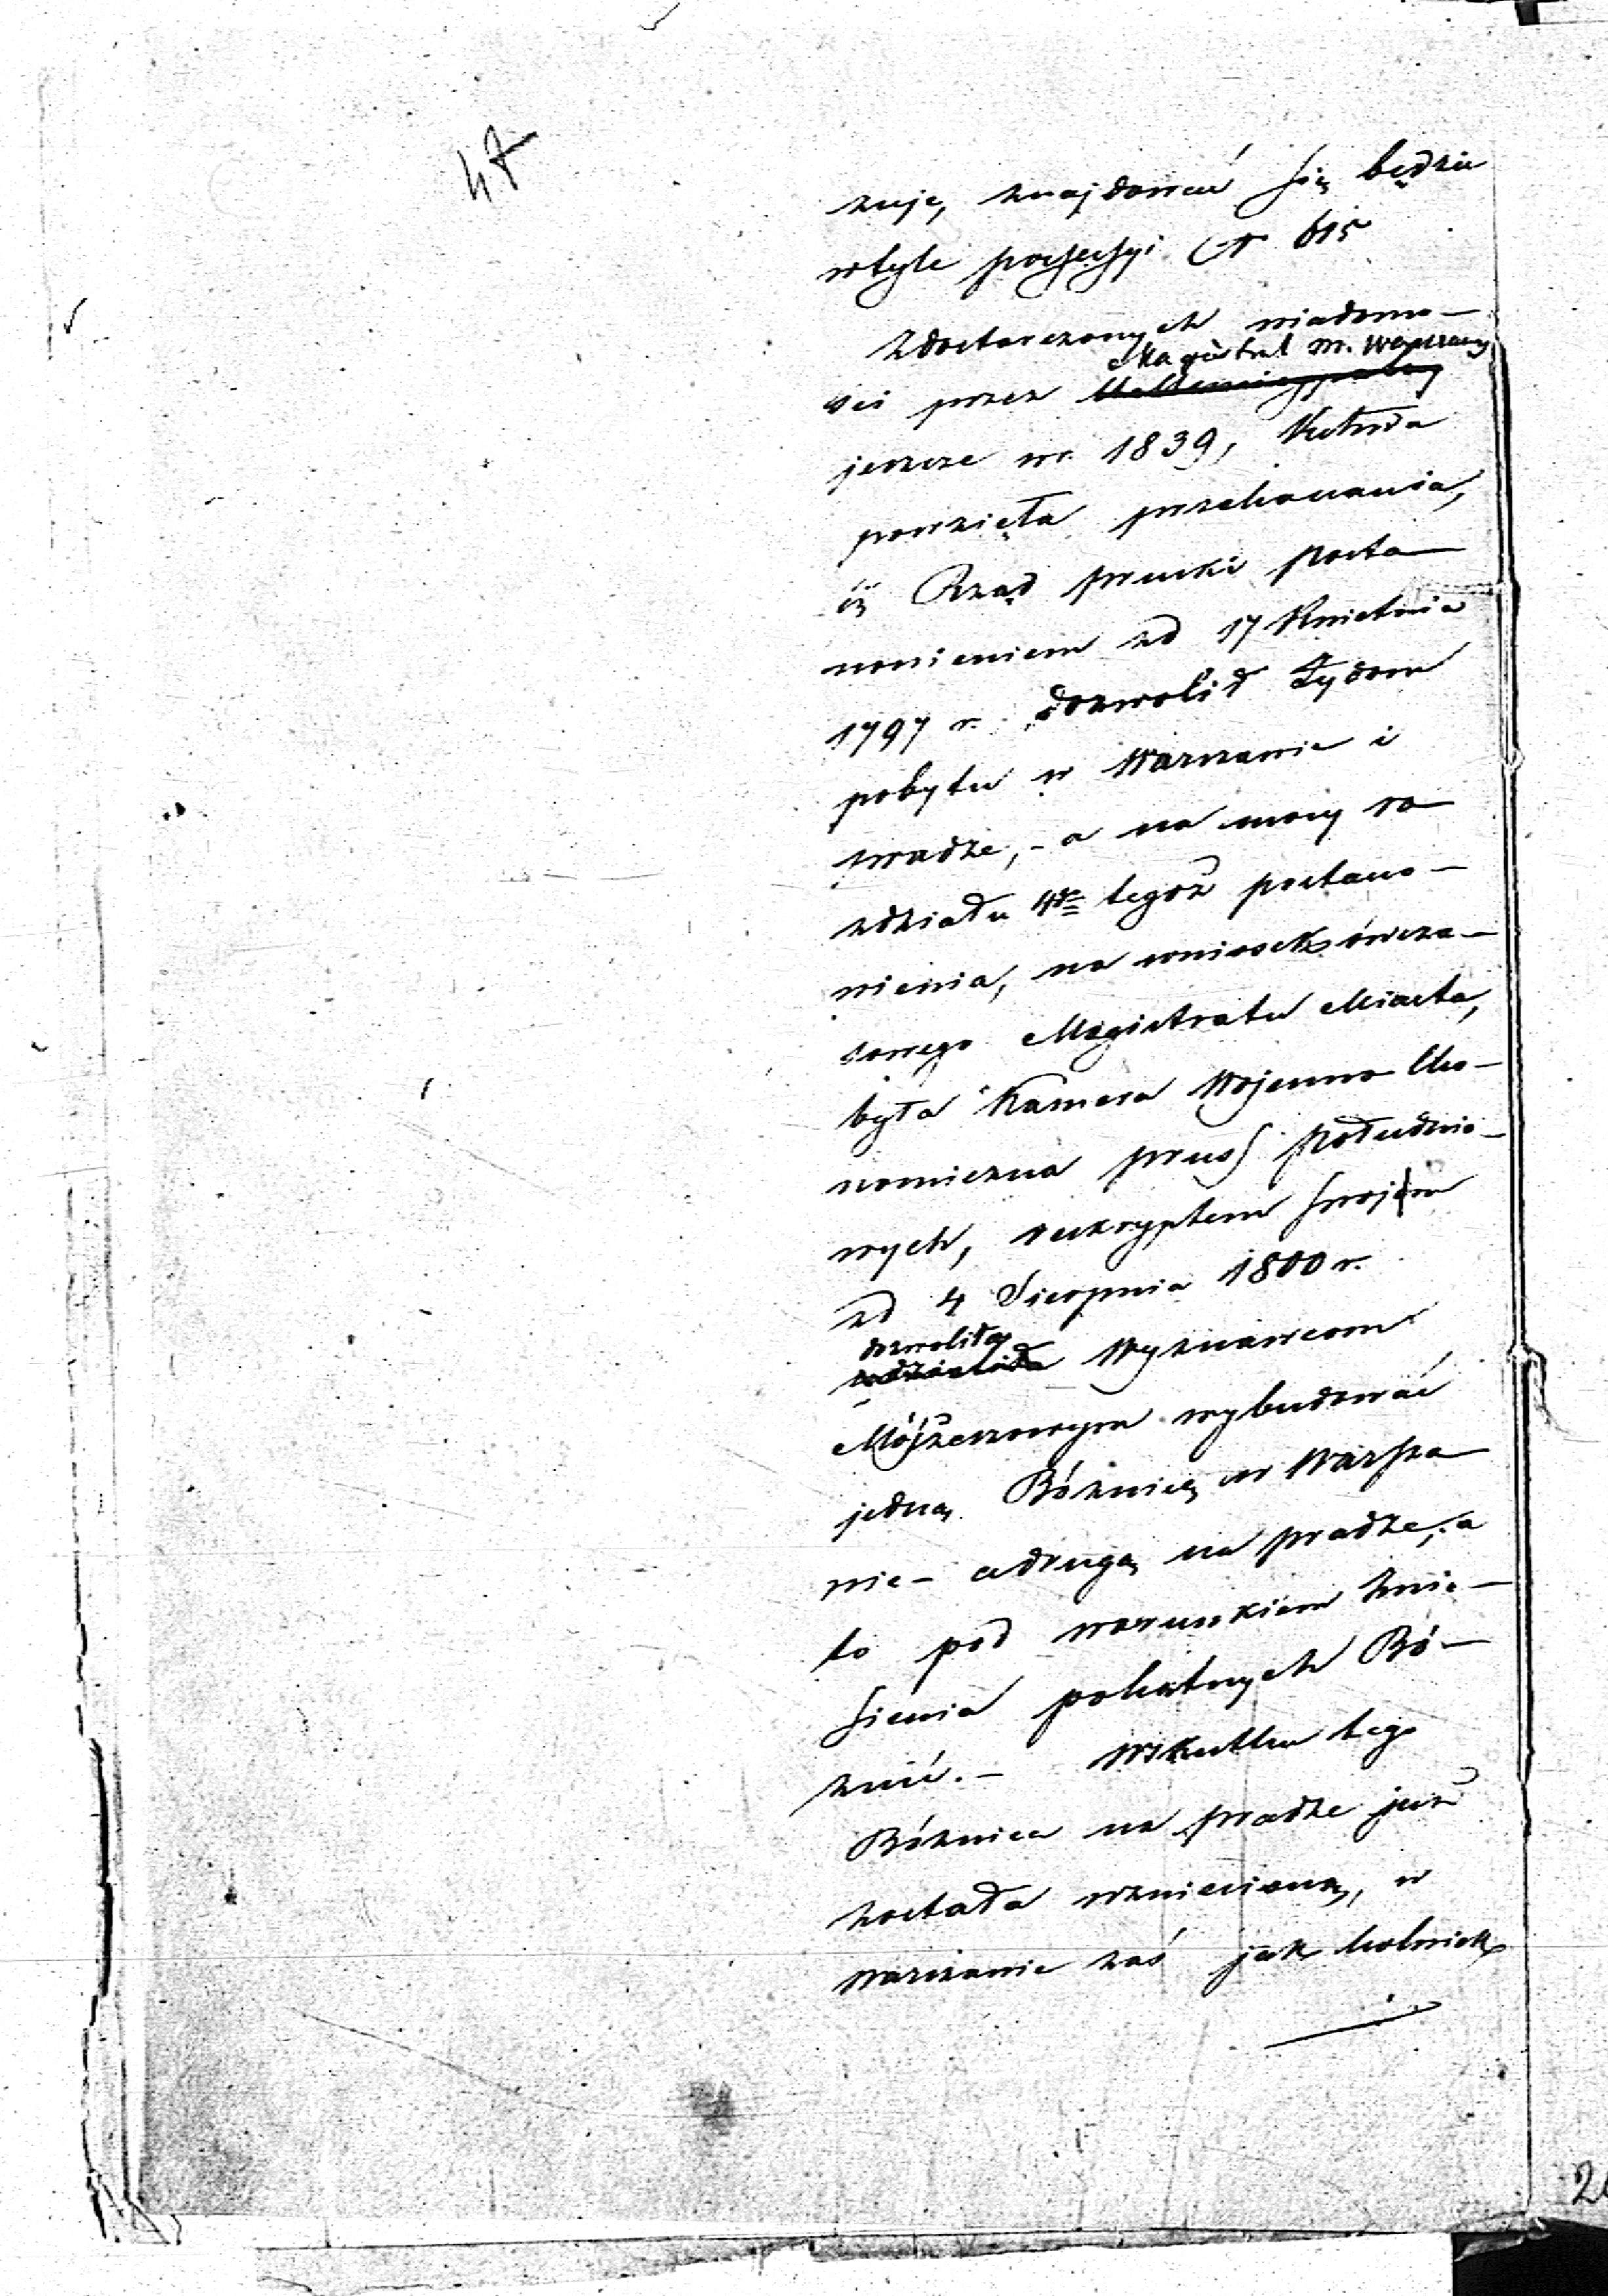 47
znję, znajdować się będzie
w tyle possessyi N 615
Z dostarczonych wiadomo—
ści przez Magistrat m. Warszawy
jeszcze w r. 1839, Władza
powzięła przekonania,
iż Rząd pruski posta—
nowieniem z d 17 Kwietnia
1797 r. dozwolił Żydom
pobytu w Warszawie i
pradze, – a na mocy ro
zdziału 4go tegoż postano—
wienia, na wniosek ówcze—
snego Magistratu Miasta,
była Kamera Wojenno Eko—
nomiczna pruss południo—
wych, reskryptem swojem
z d 4 Sierpnia 1800 r.
dozwoliła Wyznawcom
Mójżeszowym wybudować
jedną Bóżnicę w Warsza—
wie – a drugą na pradze, a
to pod warunkiem znie—
sienia pokątnych Bó—
żnic. – W skutku tego
Bóżnica na pradze już
została wzniesioną, w
Warszawie zaś jak kolwiek
2